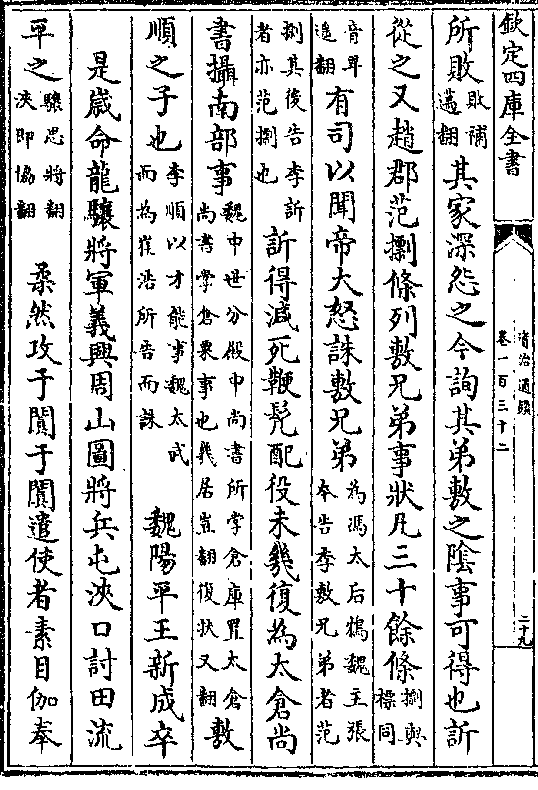 欽定四庫全書
資治通鑑
卷一百三十二
二十九
所敗敗補邁翻其家深怨之今詢其弟敷之隂事可得也訢
從之又趙郡范㯹條列敷兄弟事狀凡三十餘條㯹與標同
音昇遥翻有司以聞帝大怒誅敷兄弟為馮太后鴆魏主張本告李敷兄弟者范
㯹其後告李訢者亦范㯹也訢得減死鞭髠配役未幾復為太倉尚
書攝南部事魏中世分殿中尚書所掌倉庫置太倉尚書掌倉粟事也幾居豈翻復扶又翻敷
順之子也李順以才能事魏太武而為崔浩所告而誅魏陽平王新成卒
是嵗命龍驤將軍義興周山圖將兵屯浹口討田流
平之驤思將翻浹即協翻柔然攻于闐于闐遣使者素目伽奉